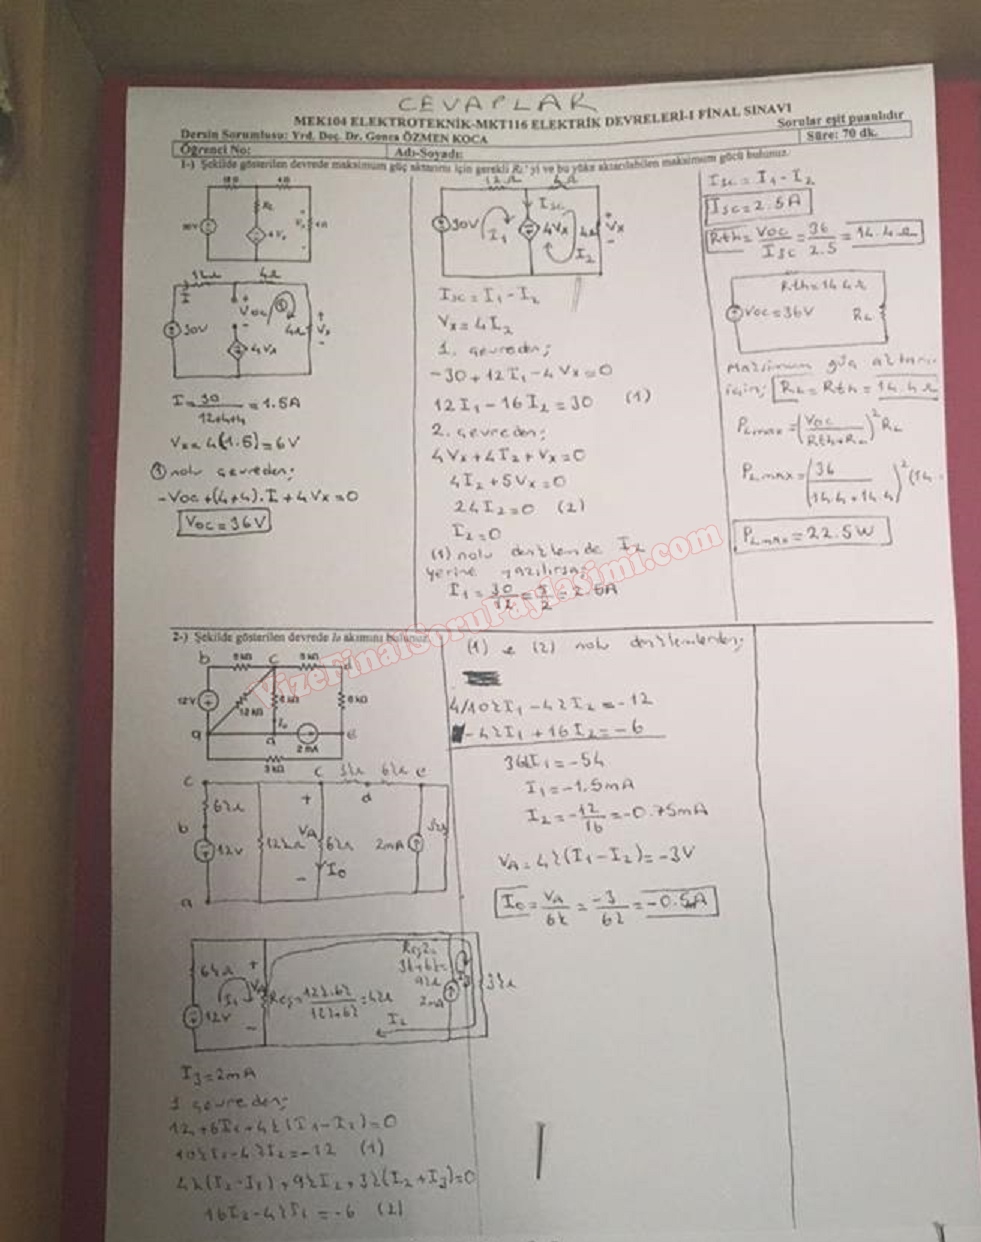 CEVAPLAR
MEK104 ELEKTROTEKNİK-MKT116 ELEKTRİK DEVRELERİ-I FİNAL SINAVI
Dersin Sorumlusu: Yrd. Doç. Dr. Gonca ÖZMEN KOCA
Sorular eşit puanlıdır
Öğrenci No:
Adı-Soyadı:
Süre: 70 dk.
1-) Şekilde gösterilen devrede maksimum güç aktarımı için gerekli RL'yi ve bu yüke aktarılabilen maksimum gücü bulunuz.
RL
4Vx
12Ω 4Ω
I
30V
+ Voc -
①
4Ω
+ Vx -
4Vx
I = 30/(12+4+4) = 1.5A
Vx = 4(1.5) = 6V
① nolu çevreden;
-Voc+(4+4).I+4Vx=0
Voc=36V
12Ω 4Ω
30V
I1
Isc
4Vx
4Ω
+ Vx -
I2
Isc = I1 - I2
Vx = 4I2
1. çevreden;
-30+12I1-4Vx=0
12I1-16I2=30 (1)
2. çevreden;
4Vx+4I2+Vx=0
4I2+5Vx=0
24I2=0 (2)
I2=0
(1) nolu denklemde I2
yerine yazılırsa;
I1 = 30/12 = 5/2 = 2.5A
Isc = I1 - I2
Isc=2.5A
Rth = Voc/Isc = 36/2.5 = 14.4Ω
Rth=14.4Ω
Voc=36V
RL
Maksimum güç aktarımı
için; RL=Rth=14.4Ω
PLmax=(Voc/(Rth+RL))² RL
PLmax=(36/(14.4+14.4))² (14.
PLmax=22.5W
2-) Şekilde gösterilen devrede Io akımını bulunuz.
b 6 kΩ c 3 kΩ d
12V
12 kΩ
6 kΩ
6 kΩ
Io
a d e
2 mA
3 kΩ
c c 3kΩ 6kΩ e
d
6kΩ
b
12V
12kΩ
+ VA -
6kΩ
Io
2mA
3kΩ
a
6kΩ
I1
12V
+ VA -
Reş = 12k.6k/(12k+6k) = 4kΩ
Reş2=
3k+6k=
9kΩ
I3
2mA
3kΩ
I2
I3=2mA
1. çevreden;
12+6I1+4k(I1-I2)=0
10kI1-4kI2=-12 (1)
4k(I2-I1)+9kI2+3k(I2+I3)=0
16I2-4kI1=-6 (2)
(1) ve (2) nolu denklemlerden;
4/10kI1-4kI2=-12
-4kI1+16I2=-6
36kI1=-54
I1=-1.5mA
I2=-12/16=-0.75mA
VA=4k(I1-I2)=-3V
Io = VA/6k = -3/6k = -0.5mA
VizeFinalSoruPaylasimi.com